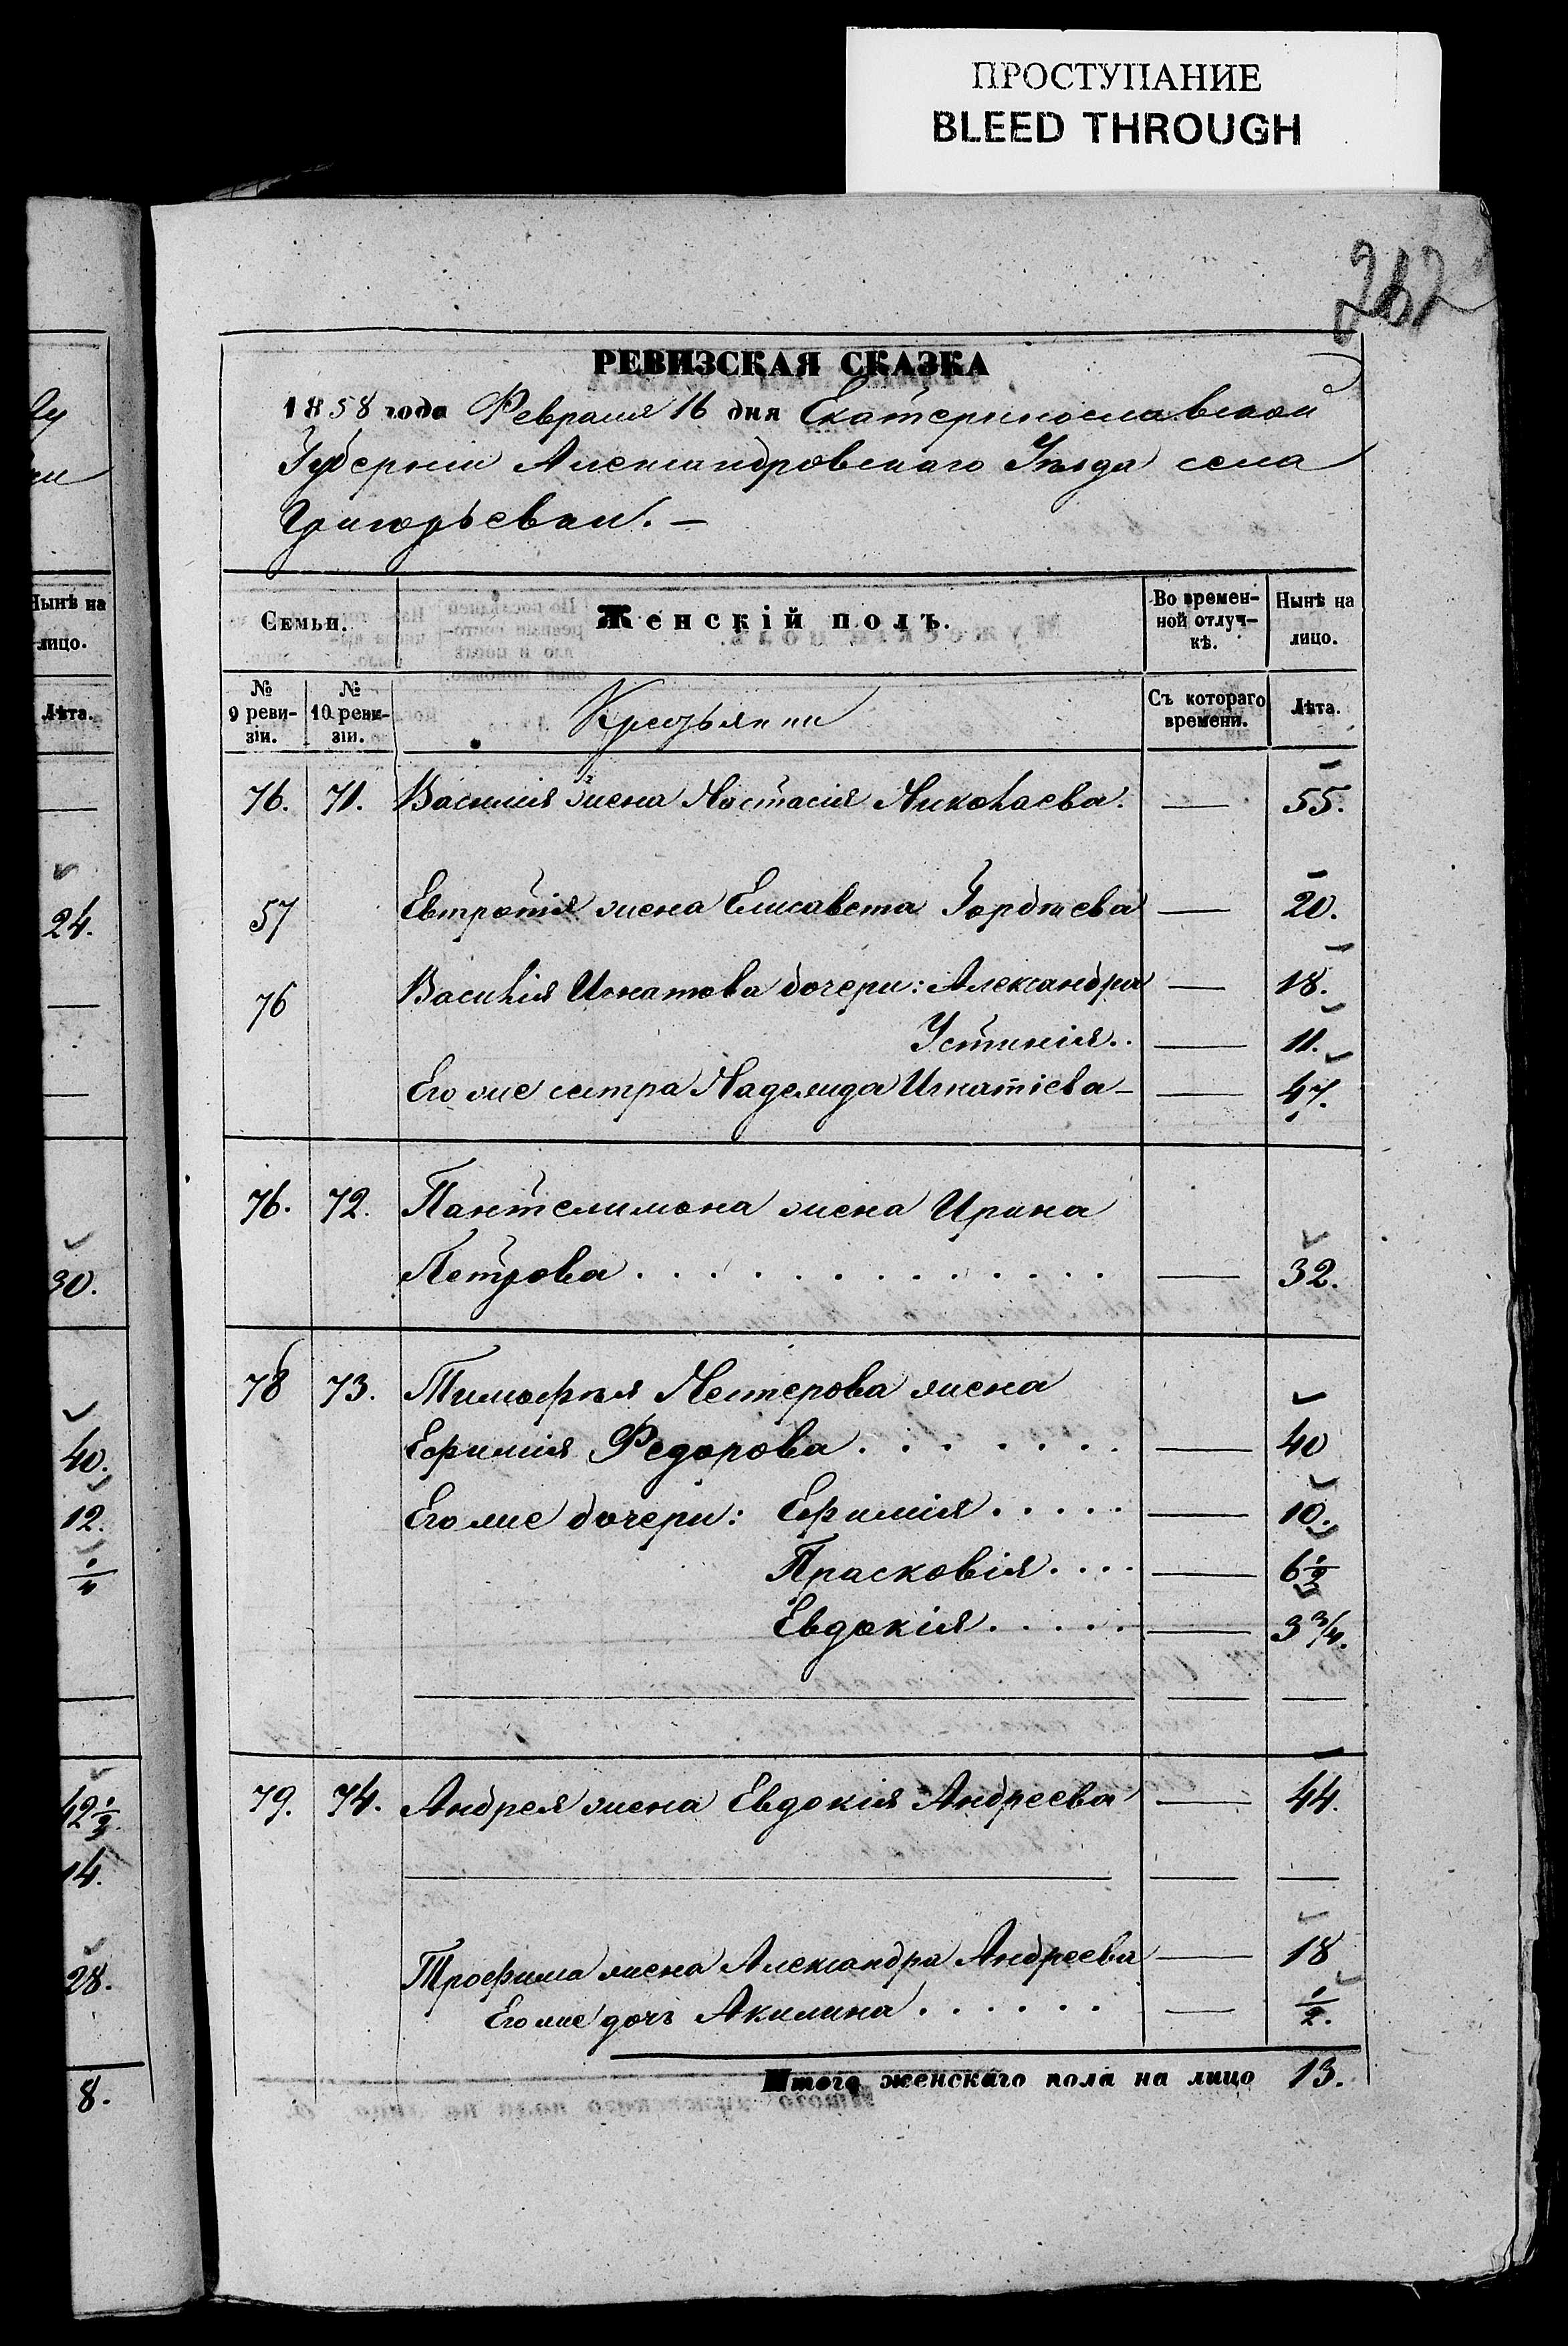 ПРОСТУПАНИЕ
BLEED THROUGH
РЕВИЗСКАЯ СКАЗКА
1858 года Февраля 16 дня Екатеринославской
Губерніи Александровскаго Уѣзда села
Григорьевки. —
Нынѣ на лицо.
Лѣта.
24.
30.
40.
12.
1/4
42 1/2
14.
28.
8.
Семьи.
Женскій полъ.
Во времен-
ной отлуч-
кѣ.
Нынѣ на
лицо.
№
9 реви-
зіи.
№
10 реви-
зіи.
Крестьянки
Съ котораго
времени.
Лѣта.
76. 71. Василія жена Настасія Николаева. — 55.
57 жена Елисавета Гордѣева — 20.
76 Василія Игнатова дочери: Александра — 18.
Устинія.. — 11.
Его же сестра Надежда Игнатіева — — 47.
76. 72. Пантелимона жена Ирина
Петрова . . . . . . . . . . . . — 32.
78 73. Тимофѣя Нестерова жена
Ефимія Федорова . . . . . . . — 40
Его же дочери: Ефимія . . . . . — 10.
Прасковія . . . . — 6 1/2
Евдокія . . . . . — 3 3/4.
79. 74. Андрея жена Евдокія Андреева — 44.
Трофима жена Александра Андреева — 18
Его же дочь Акилина . . . . . . — 1/2.
Итого женскаго пола на лицо 13.